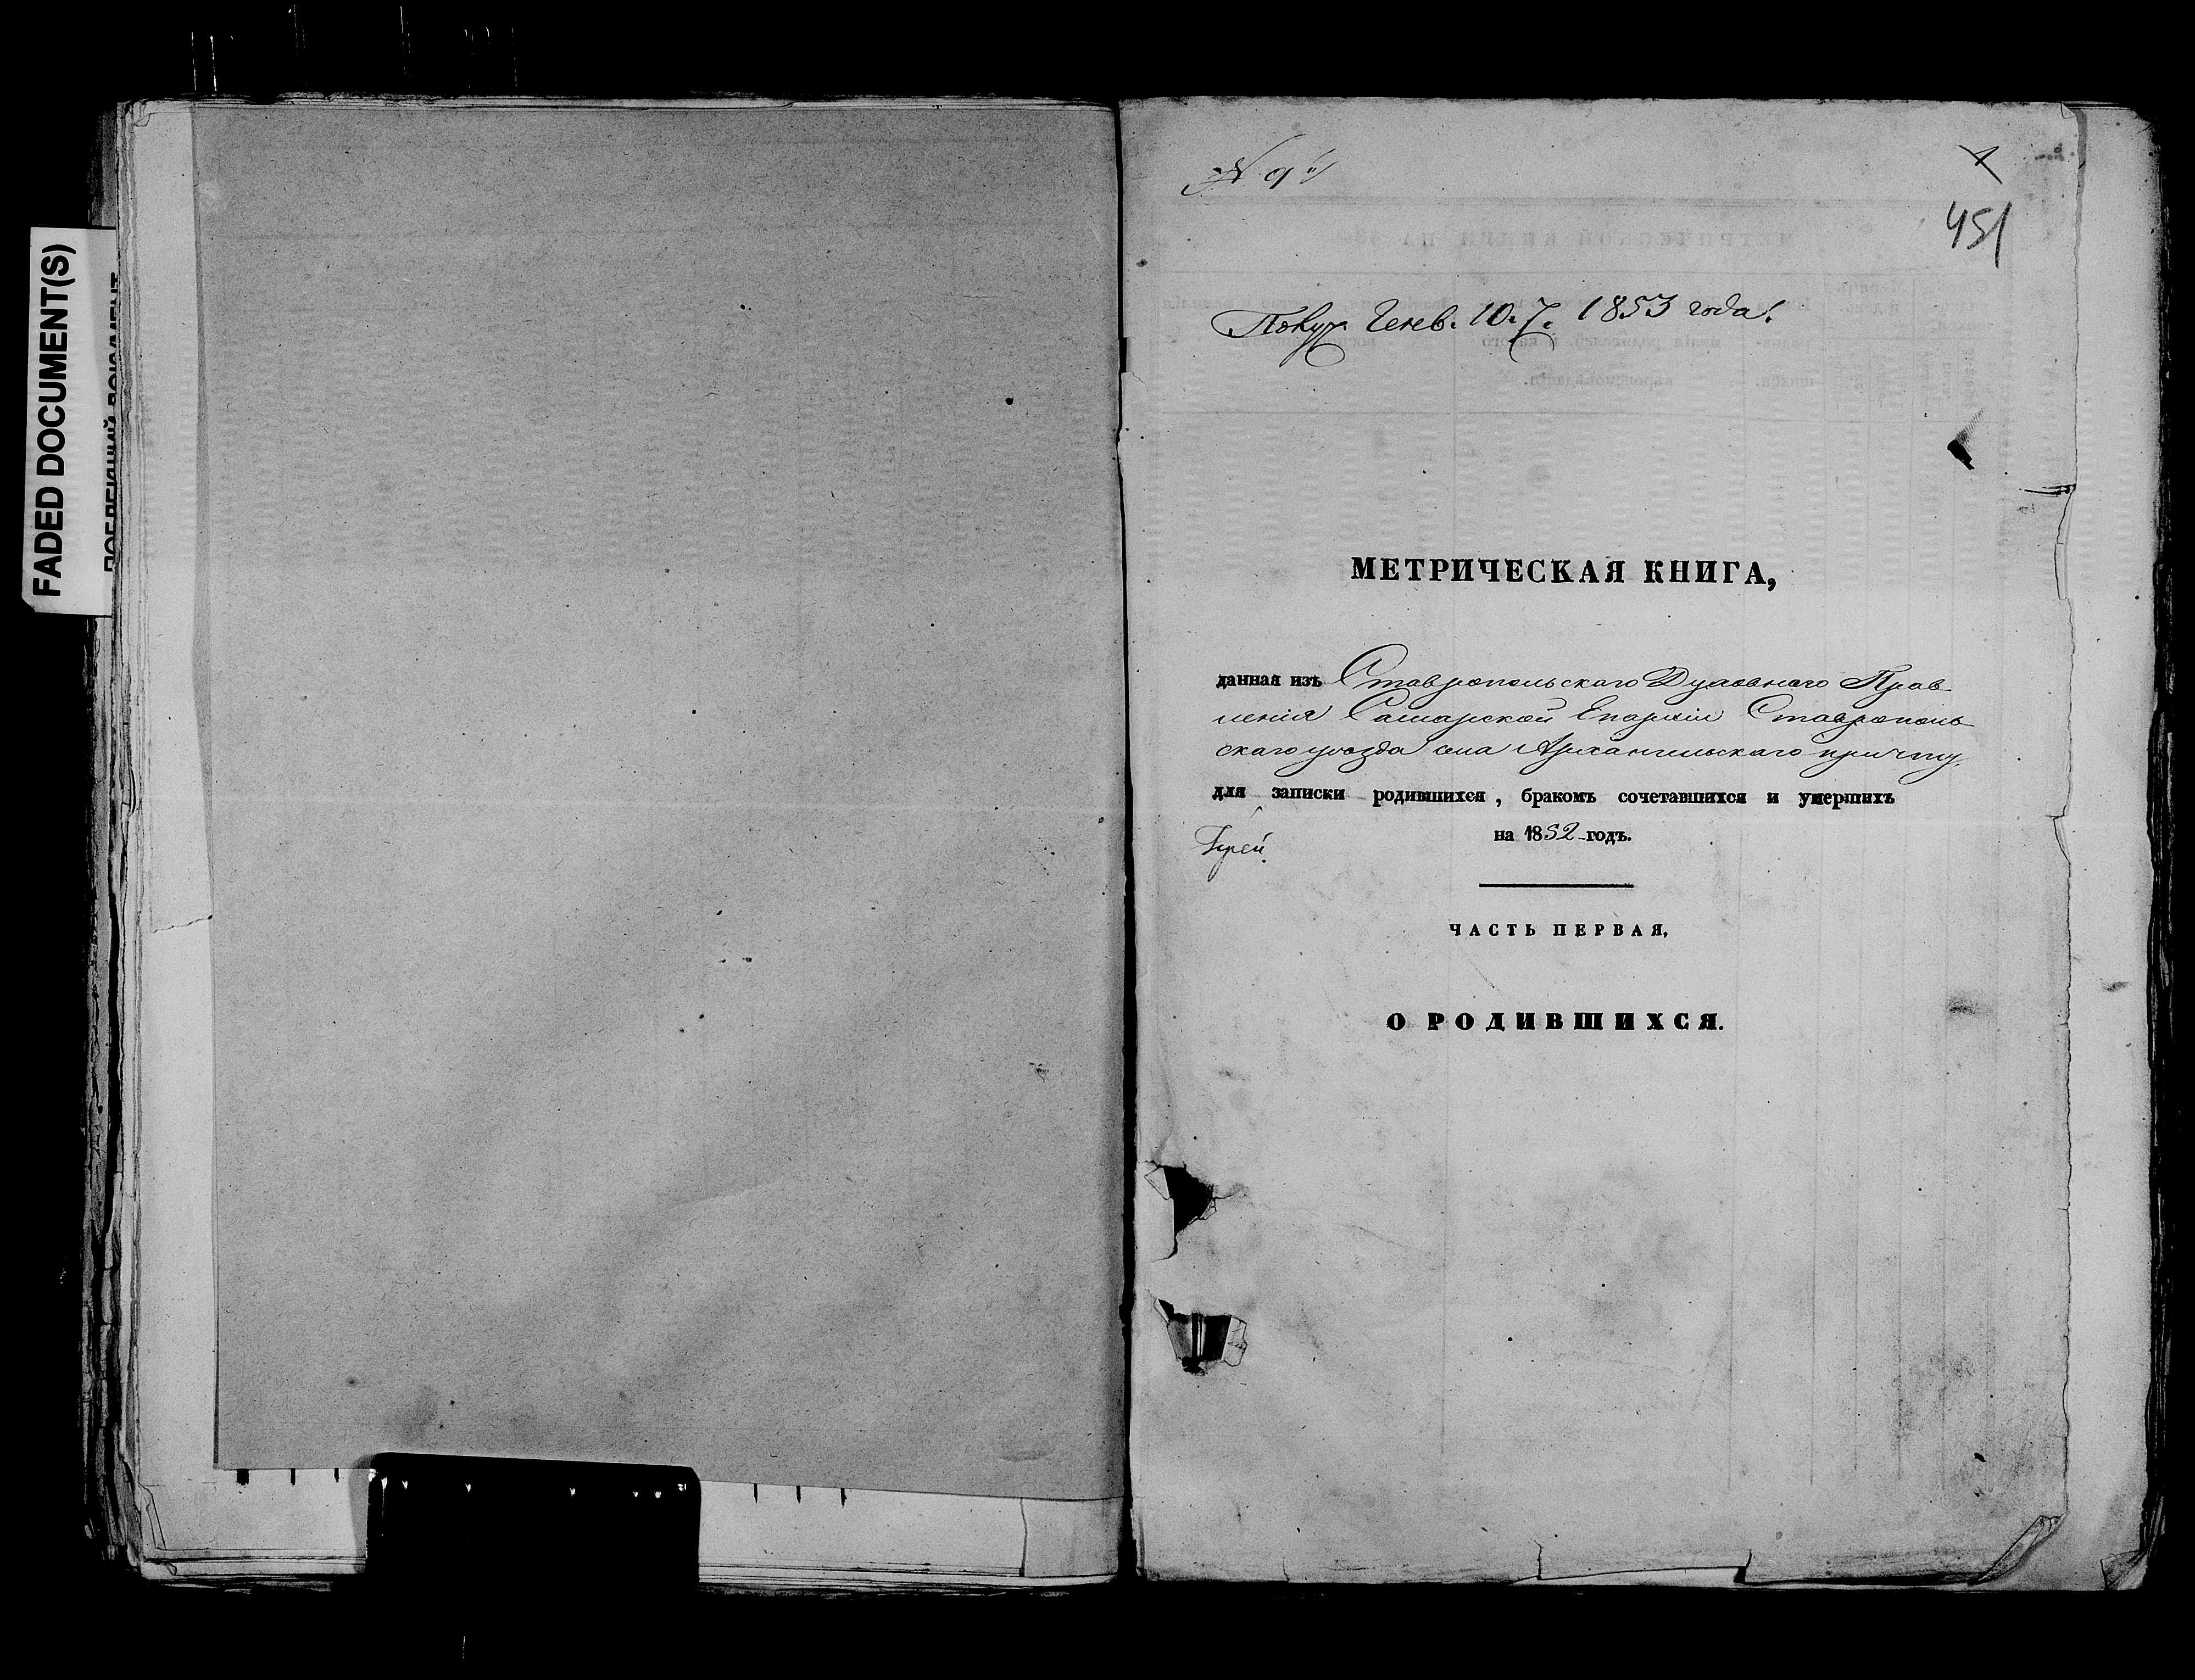 FADED DOCUMENT(S)
№ 9
451
Генв. 10. 1853 года.
МЕТРИЧЕСКАЯ КНИГА,
данная изъ Ставропольскаго Духовнаго Прав-
ленія Самарской Епархіи Ставрополь-
скаго уѣзда села Архангельскаго причту,
для записки родившихся, бракомъ сочетавшихся и умершихъ
на 1852 годъ.
ЧАСТЬ ПЕРВАЯ,
О РОДИВШИХСЯ.